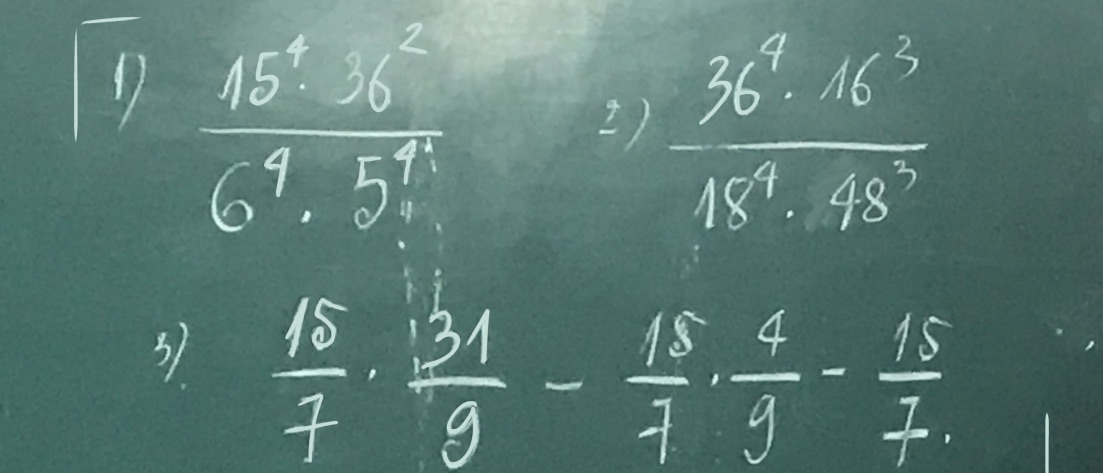 1) \frac{15^4 . 36^2}{6^4 . 5^4}
2) \frac{36^4 . 16^3}{18^4 . 48^3}
3) \frac{15}{7} . \frac{31}{9} - \frac{15}{7} . \frac{4}{9} - \frac{15}{7} .